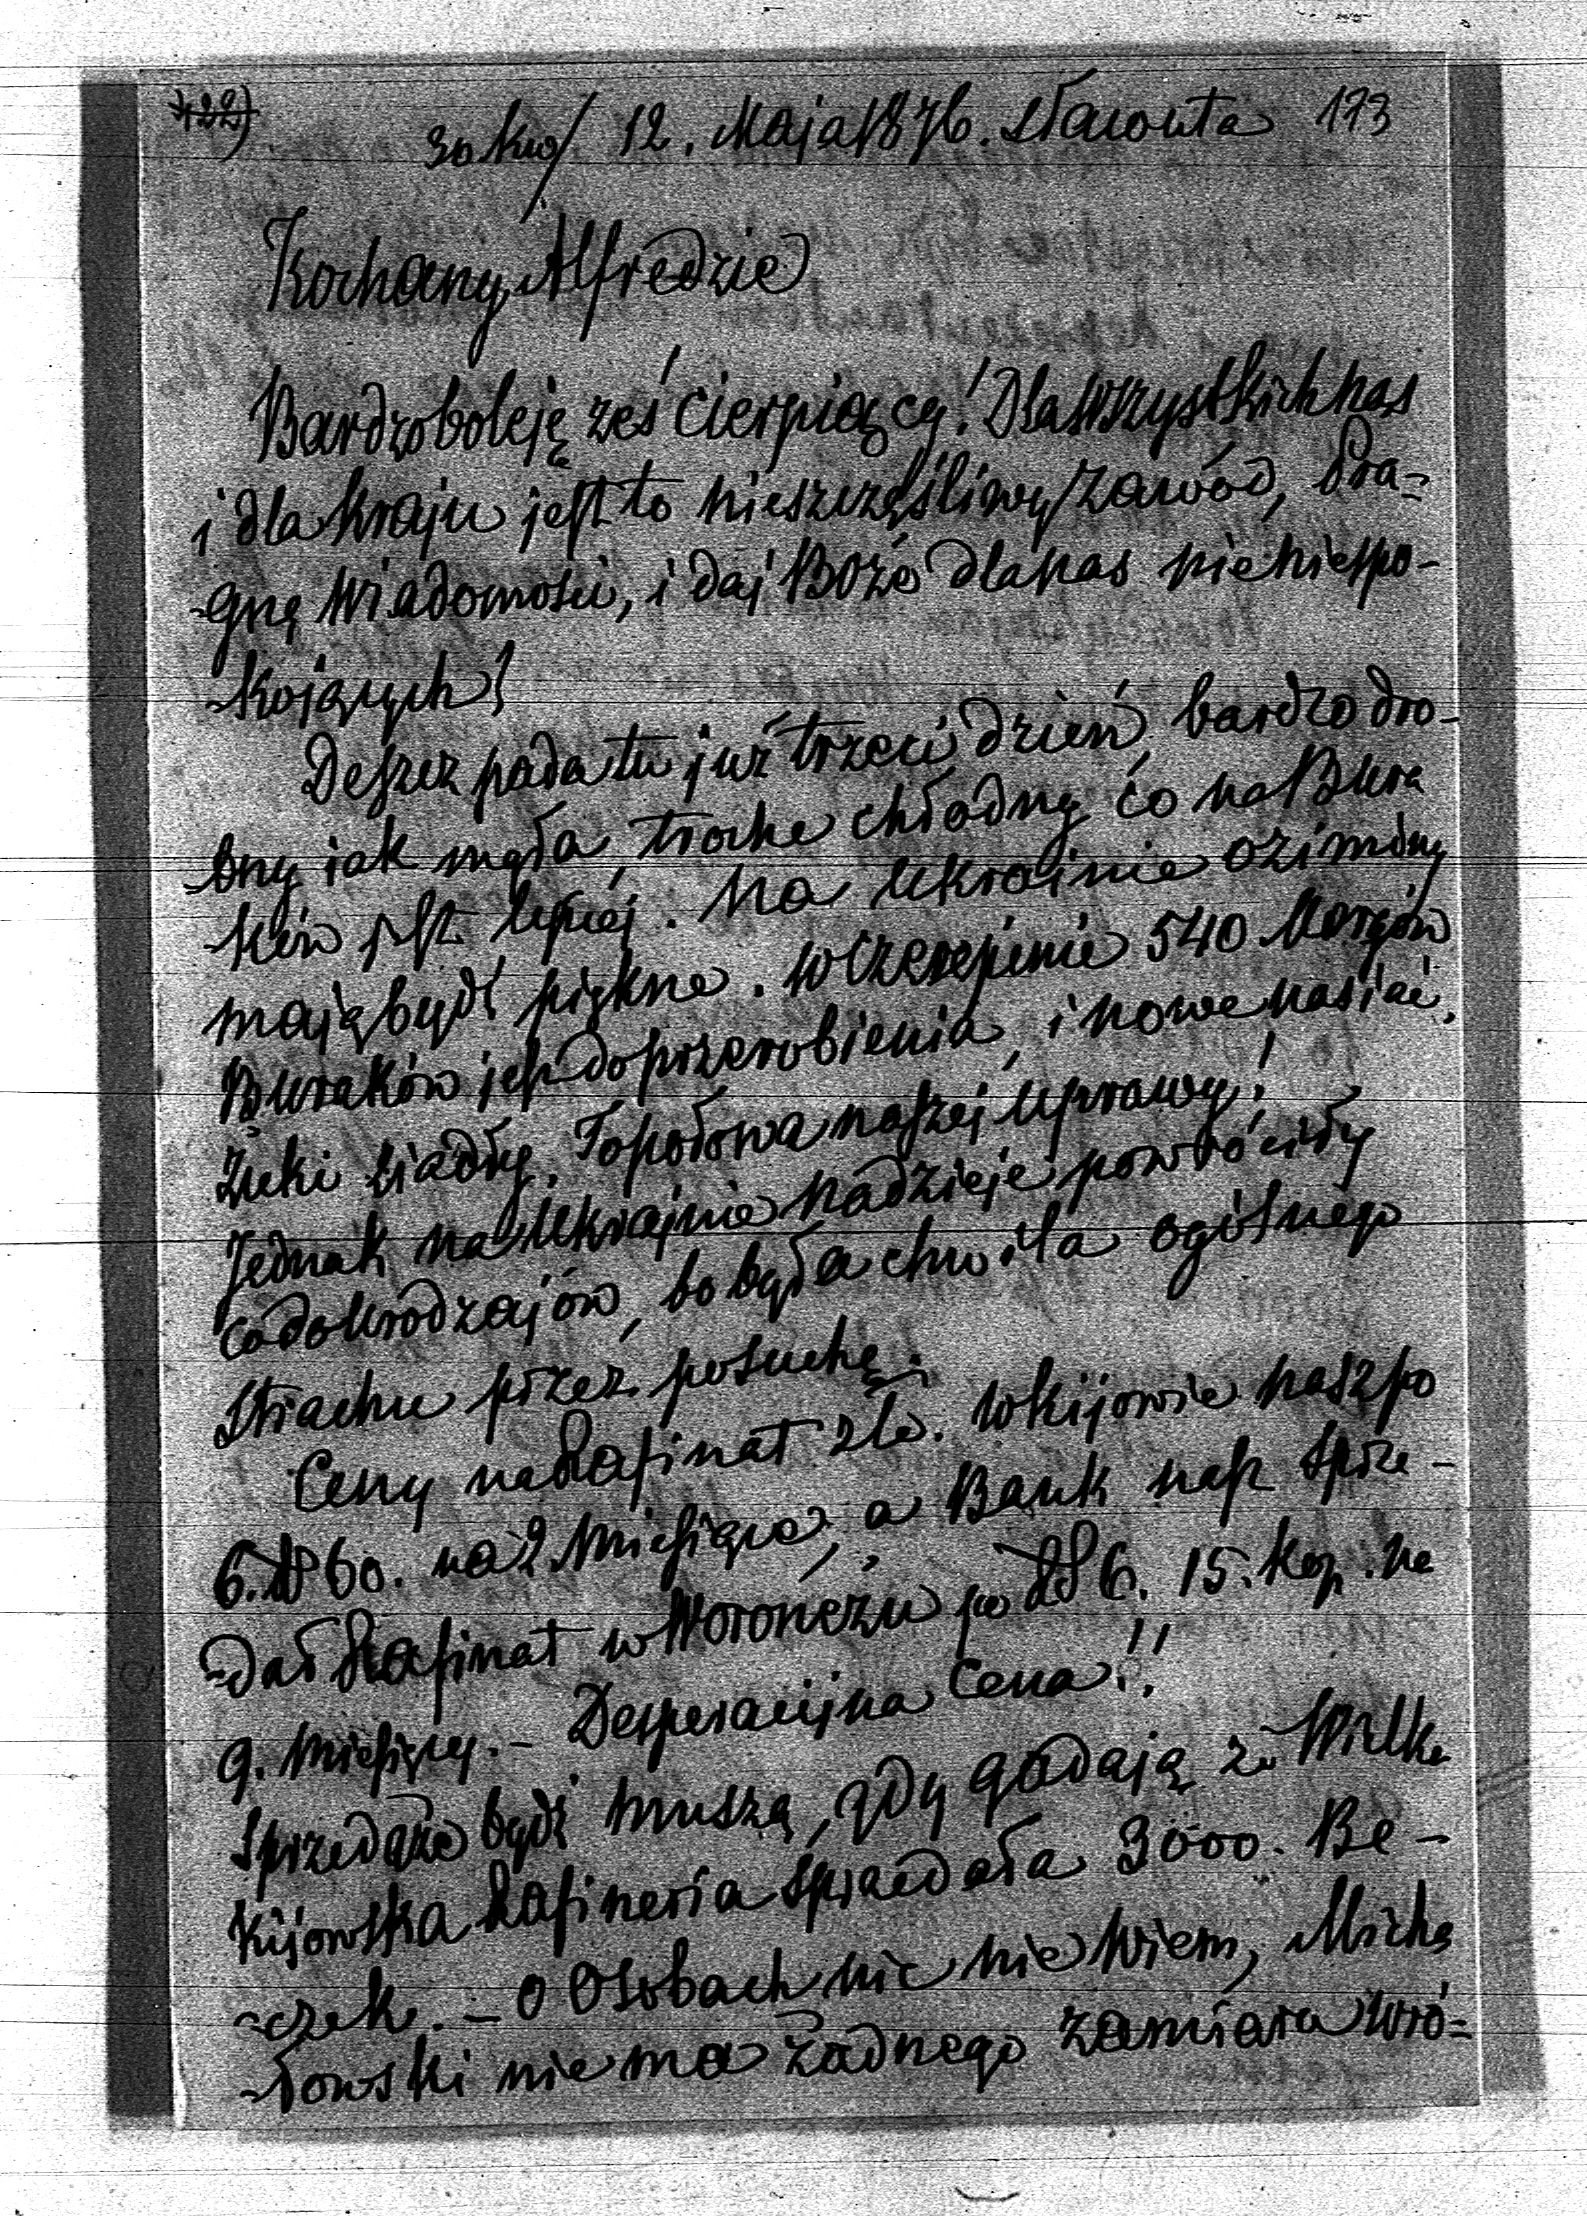 422)
30 Kw/ 12. Maja 1876. Sławuta 173
Kochany Alfredzie
Bardzo boleję żeś cierpiący! Dla wszystkich nas
i dla kraju jest to nieszczęśliwy zawód, Pra=
-gnę wiadomości, i daj Boże dla nas nie niespo-
-kojących!
Deszcz pada tu już trzeci dzień, bardzo dro-
-bny jak mgła, trochę chłodny, co na Bura
-ków jest lepiej. Na Ukrainie oziminy
mają bydź piękne. w Czerepinie 540 Morgów
Buraków jest do przerobienia, i nowe nasiać.
Żuki zjadły. To połowa naszej uprawy!
Jednak na Ukrajnie nadzieje powróciły
co do urodzajów, bo była chwila ogólnego
strachu przez posuchę.
Ceny na Rafinat złe. w Kijowie nasz po
6. R 60. na 2 Miesiące, a Bank nasz sprze-
-dał Rafinat w Woroneżu po RS 6. 15. Kop. na
9. Miesięcy. - Desperacyjna Cena!!
Sprzedaże bydź muszą, gdy gadają że Wielka
Kijowska Rafineria sprzedała 3000. Be-
-czek. - O Osobach nic nie wiem, Micha
-łowski nie ma żadnego zamiaru wró=